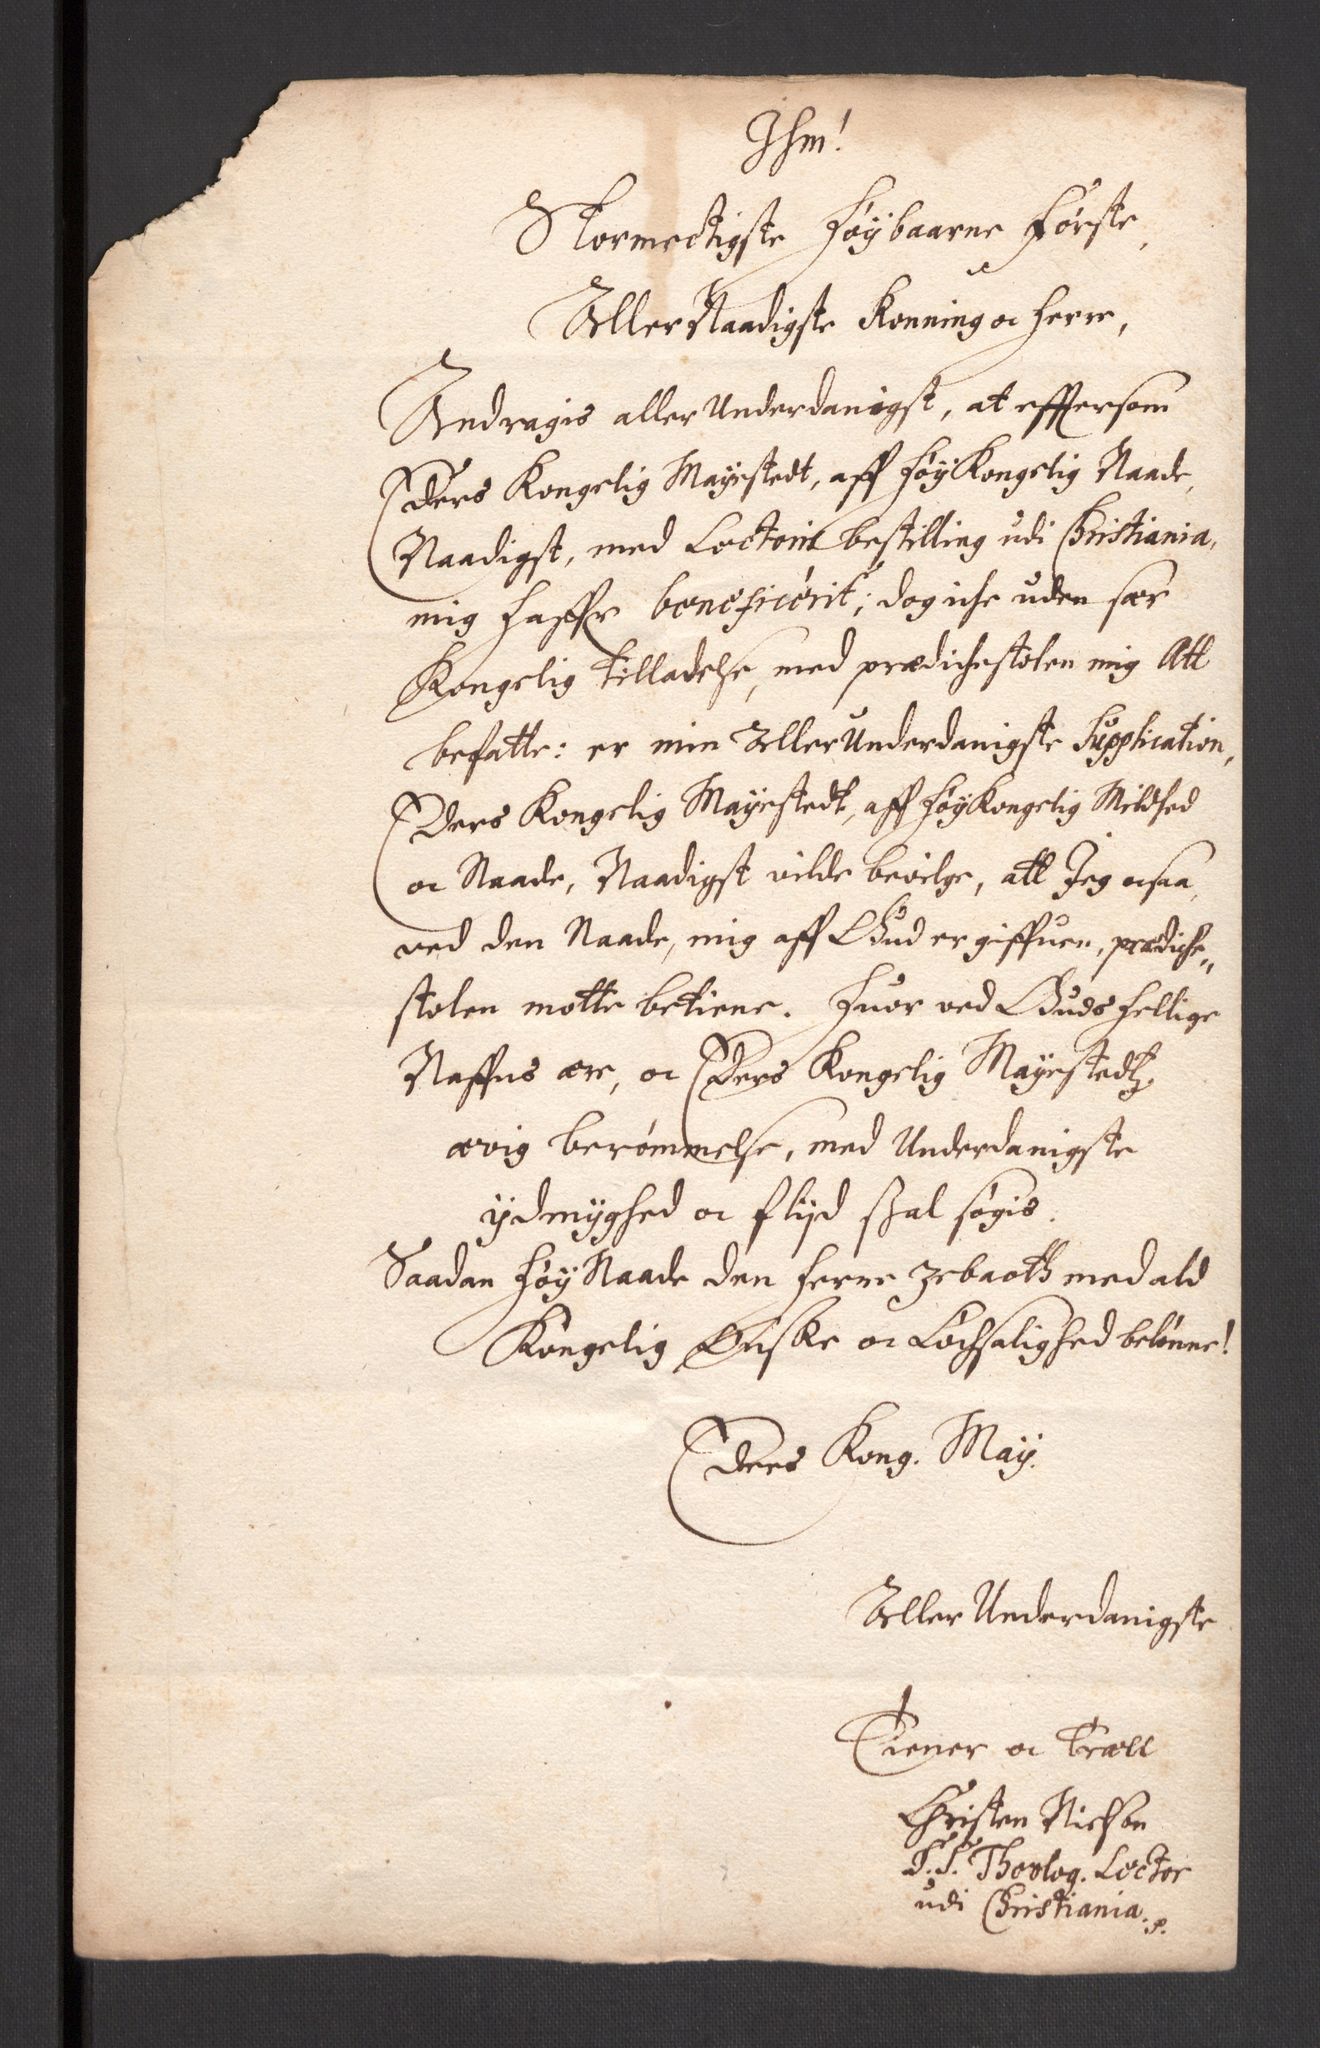 Ihm!
Stormectigste Høybaarne Første,
Aller Naadigste Konning oc Herre,
Andragis aller Underdanigst, at effttersom
Eders Kongelig Mayestedt, aff HøyKongelig Naade,
Naadigst, med Lectoris bestilling udi Christiania,
mig haffr beneficérit; dog iche uden sær
Kongelig tilladelse, med prædichestolen mig Att
befatte: er min Aller Underdanigste Supplication,
Eders Kongelig Mayestedt, aff HøyKongelig Mildhed
oc Naade, Naadigst vilde bevilge, att Jeg ocsaa,
ved den Naade, mig aff Gud er giffuen, prædiche„
stolen motte betiene. Huor ved Guds hellige
Naffns ære, oc Eders Kongelig Mayestedtz
ævig berømmelse, med Underdanigste
ydmyghed oc flijd skal søgis.
Saadan Høy Naade den Herre Zebaoth med ald
Kongelig Ønske oc Lochsalighed belønne!
Eders Kong. May.
Aller Underdanigste
Tiener oc Træll
Christen Nielsøn
S.S. Theolog. Lector
udi Christiania.